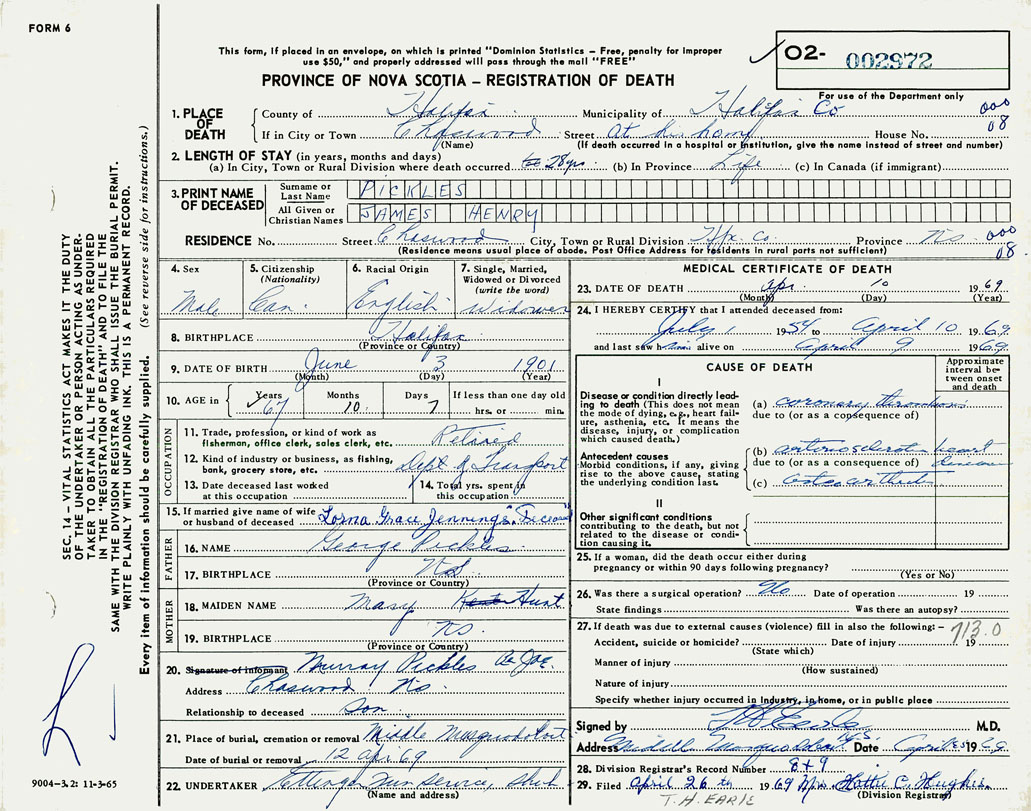 FORM 6
This form, if placed in an envelope, on which is printed "Dominion Statistics – Free, penalty for improper
use $50," and properly addressed will pass through the mail "FREE"
PROVINCE OF NOVA SCOTIA – REGISTRATION OF DEATH
02- 002972
For use of the Department only
000
08
1. PLACE OF DEATH
County of Halifax Municipality of Halifax Co
If in City or Town Chaswood Street at his home House No.
(Name) (If death occurred in a hospital or institution, give the name instead of street and number)
2. LENGTH OF STAY (in years, months and days)
(a) In City, Town or Rural Division where death occurred 28 yrs. (b) In Province Life (c) In Canada (if immigrant)
3. PRINT NAME OF DECEASED
Surname or Last Name PICKLES
All Given or Christian Names JAMES HENRY
RESIDENCE No. Street Chaswood City, Town or Rural Division Hfx. Co. Province NS 000
08.
(Residence means usual place of abode. Post Office Address for residents in rural parts not sufficient)
4. Sex Male
5. Citizenship (Nationality) Can.
6. Racial Origin English
7. Single, Married, Widowed or Divorced (write the word) Widower
8. BIRTHPLACE Halifax
(Province or Country)
9. DATE OF BIRTH June 3 1901
(Month) (Day) (Year)
10. AGE in Years 67 Months 10 Days 7 If less than one day old hrs. or min.
OCCUPATION
11. Trade, profession, or kind of work as
fisherman, office clerk, sales clerk, etc. Retired
12. Kind of industry or business, as fishing,
bank, grocery store, etc. Dept of Transport
13. Date deceased last worked
at this occupation
14. Total yrs. spent in
this occupation
15. If married give name of wife
or husband of deceased Lorna Grace Jennings
FATHER
16. NAME George Pickles
17. BIRTHPLACE NS
(Province or Country)
MOTHER
18. MAIDEN NAME Mary Hunt
19. BIRTHPLACE NS.
(Province or Country)
20. Signature of informant Murray Pickles
Address Chaswood NS
Relationship to deceased Son
21. Place of burial, cremation or removal Middle Musquodoboit
Date of burial or removal 12 Apr 69
22. UNDERTAKER Ettinger Fun Service, Shub
(Name and address)
MEDICAL CERTIFICATE OF DEATH
23. DATE OF DEATH Apr. 10 1969
(Month) (Day) (Year)
24. I HEREBY CERTIFY that I attended deceased from:
July 1 1954 to April 10 1969
and last saw him alive on April 9 1969
CAUSE OF DEATH
Approximate interval between onset and death
I
Disease or condition directly leading
to death (This does not mean
the mode of dying, e.g., heart failure,
asthenia, etc. It means the
disease, injury, or complication
which caused death.)
(a) coronary thrombosis
due to (or as a consequence of)
Antecedent causes
Morbid conditions, if any, giving
rise to the above cause, stating
the underlying condition last.
(b) arteriosclerotic heart disease
due to (or as a consequence of)
(c) osteoarthritis
II
Other significant conditions
contributing to the death, but not
related to the disease or condition
causing it.
25. If a woman, did the death occur either during
pregnancy or within 90 days following pregnancy?
(Yes or No)
26. Was there a surgical operation? No Date of operation 19
State findings Was there an autopsy?
27. If death was due to external causes (violence) fill in also the following:– 713.0
Accident, suicide or homicide? Date of injury 19
(State which)
Manner of injury
(How sustained)
Nature of injury
Specify whether injury occurred in industry, in home, or in public place
Signed by T H Earle M.D.
Address Middle Musquodoboit N.S. Date April 1969
28. Division Registrar's Record Number 8+9
29. Filed April 26th 1969 Hattie C. Hughes
(Division Registrar)
T. H. EARLE
SEC. 14 – VITAL STATISTICS ACT MAKES IT THE DUTY
OF THE UNDERTAKER OR PERSON ACTING AS UNDER-
TAKER TO OBTAIN ALL THE PARTICULARS REQUIRED
IN THE "REGISTRATION OF DEATH" AND TO FILE THE
SAME WITH THE DIVISION REGISTRAR WHO SHALL ISSUE THE BURIAL PERMIT.
WRITE PLAINLY WITH UNFADING INK. THIS IS A PERMANENT RECORD.
Every item of information should be carefully supplied. (See reverse side for instructions.)
9004–3.2: 11-3-65